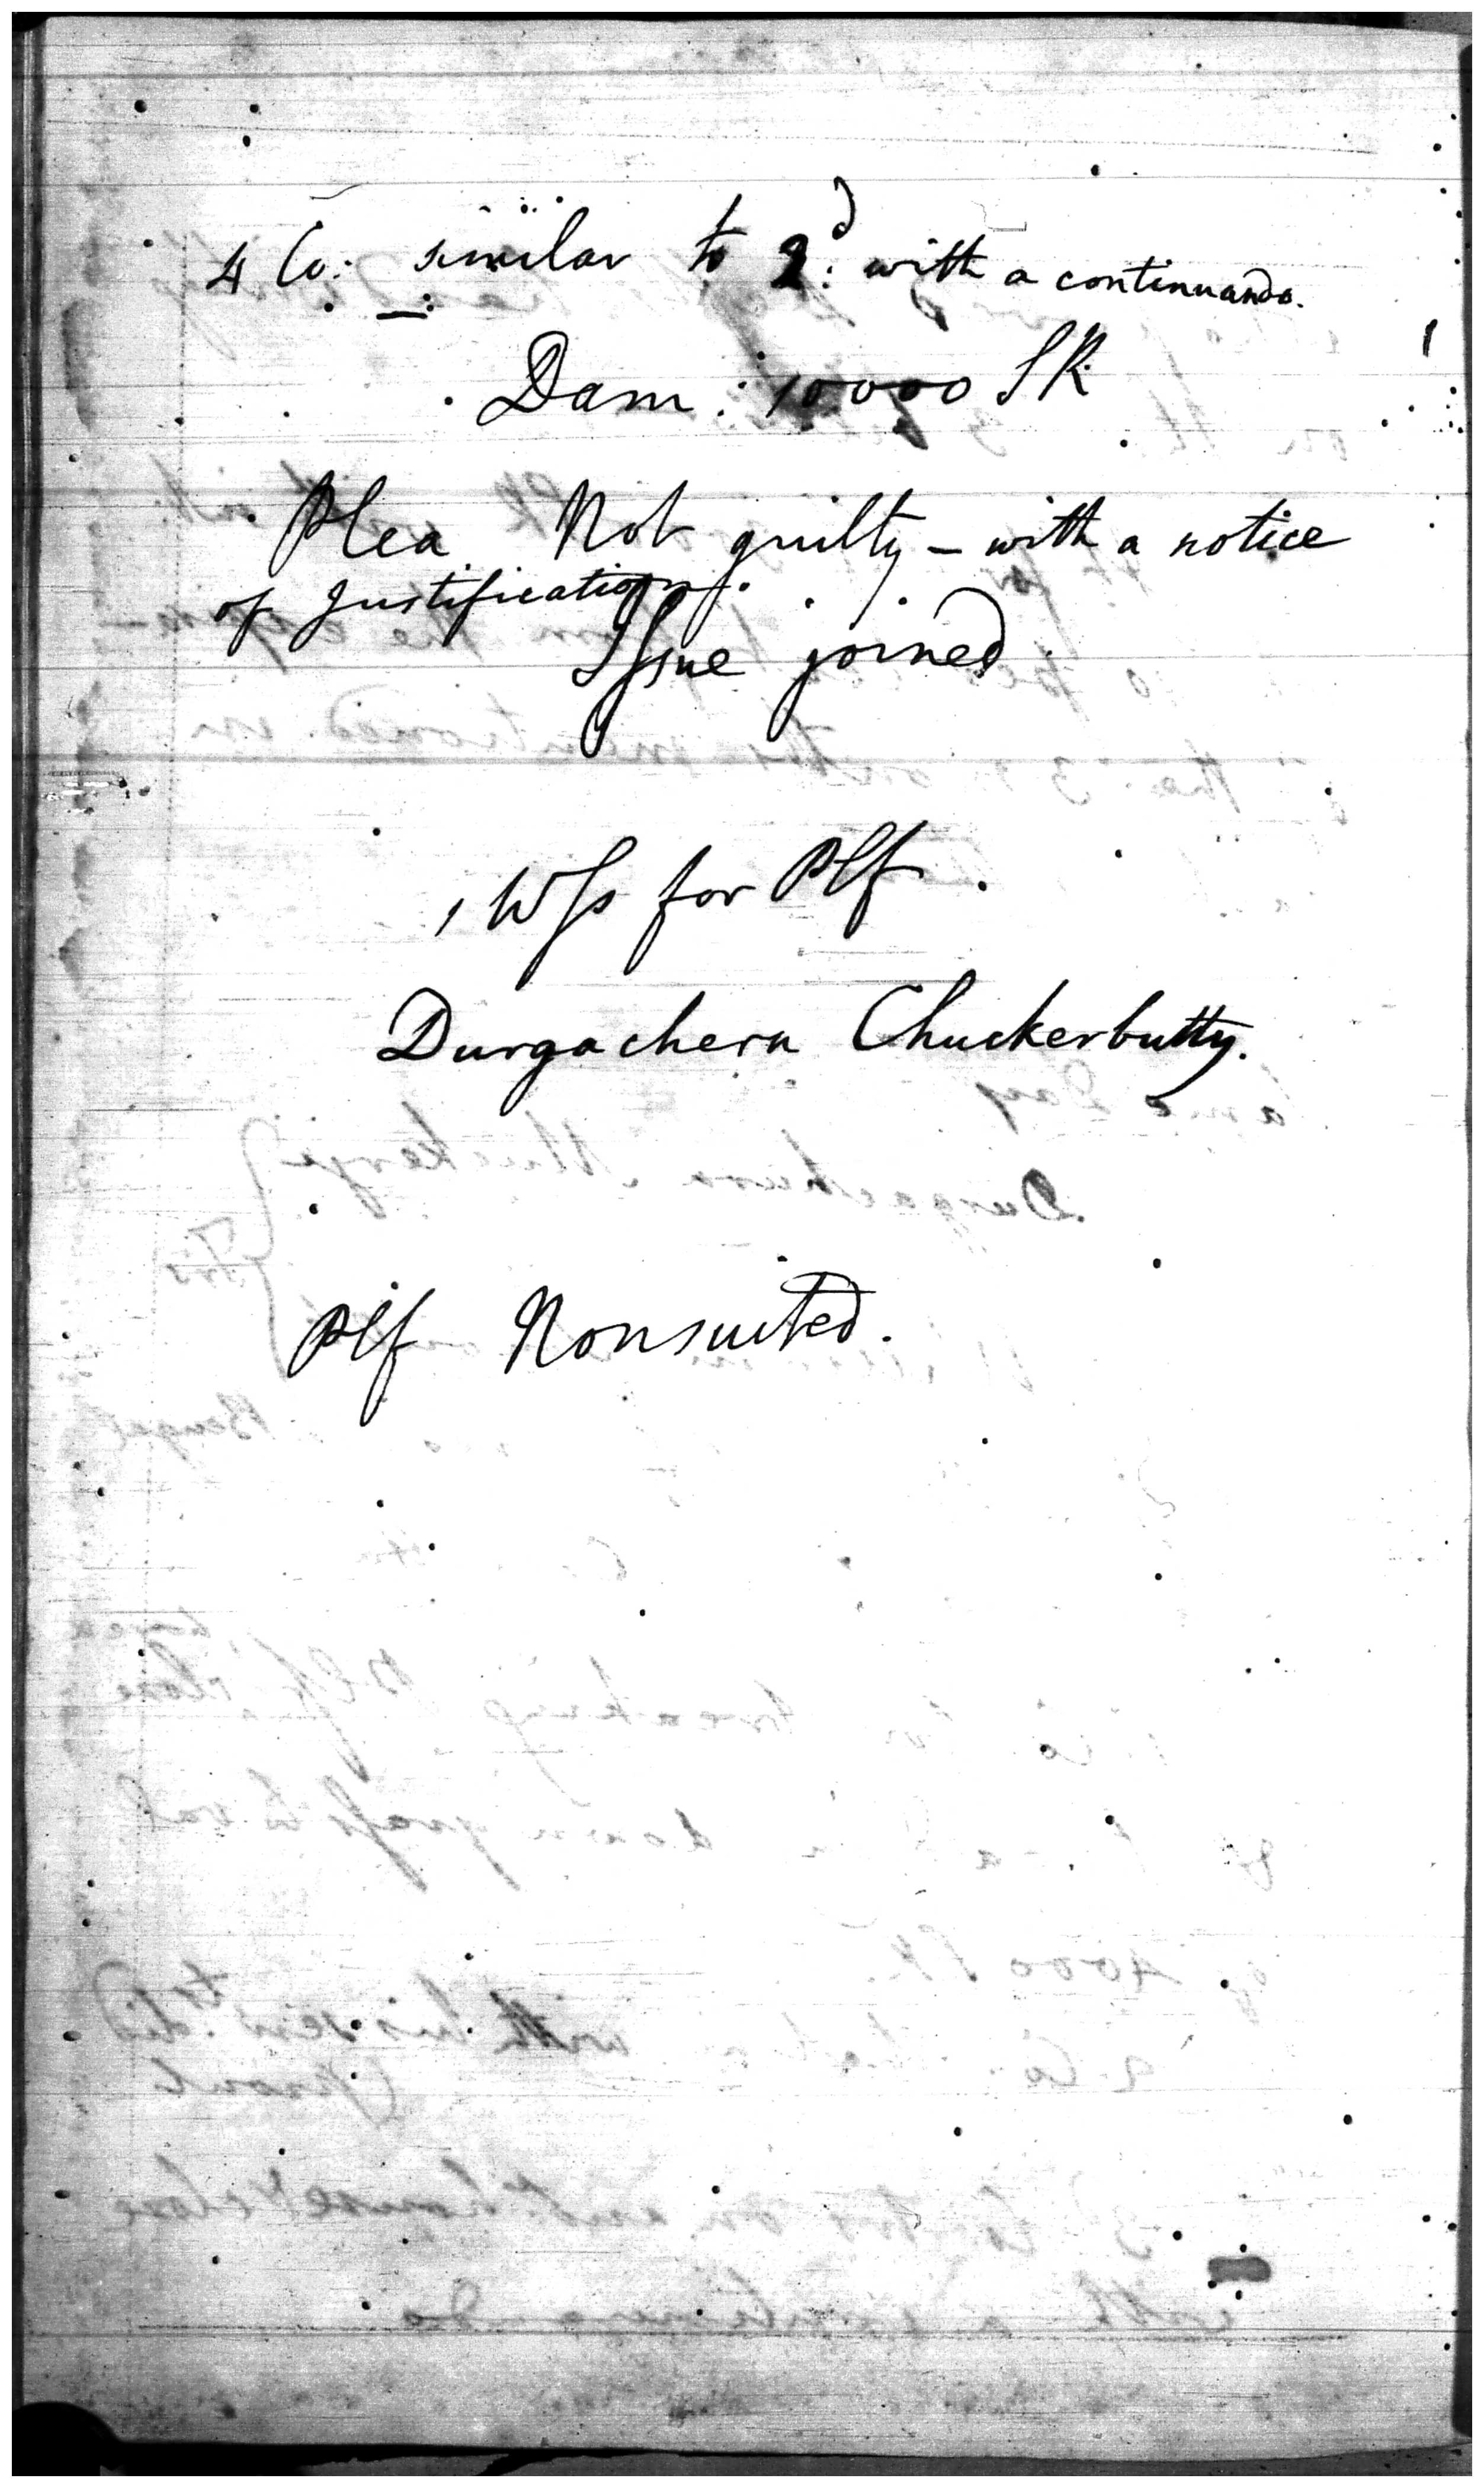 4 Co: similar to 2d: with a continuando.
Dam: 10000 SR
Plea Not guilty – with a notice
of Justification.
Issue joined.
1 Ws for Plf.
Durgachern Chuckerbutty.
Plf Nonsuited.